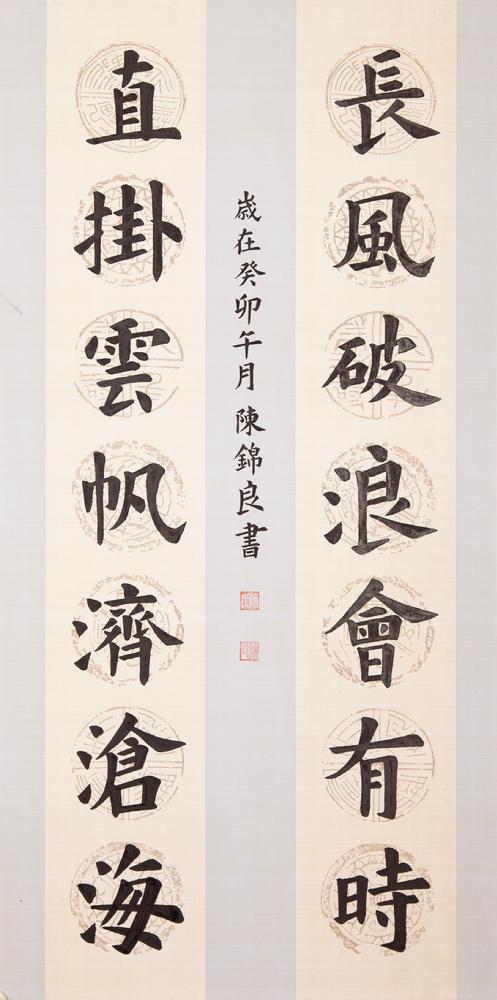 長風破浪會有時
直掛雲帆濟滄海
歲在癸卯午月 陳錦良書